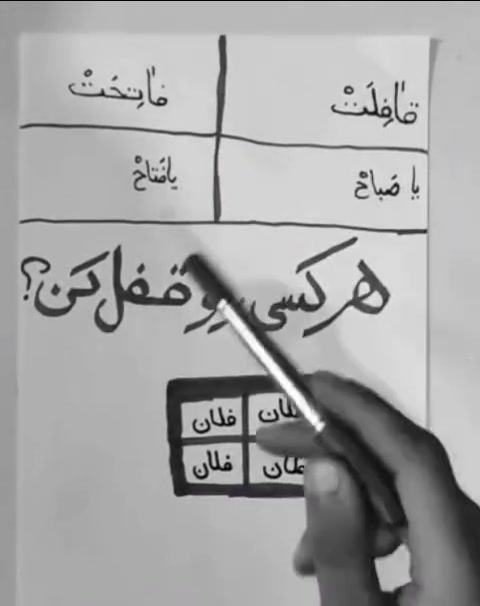 قافِلَتْ فاتِحَتْ
یا صَباحْ یافَتاحْ
هر کسی رو قفل کن؟
فلان فلان
فلان فلان